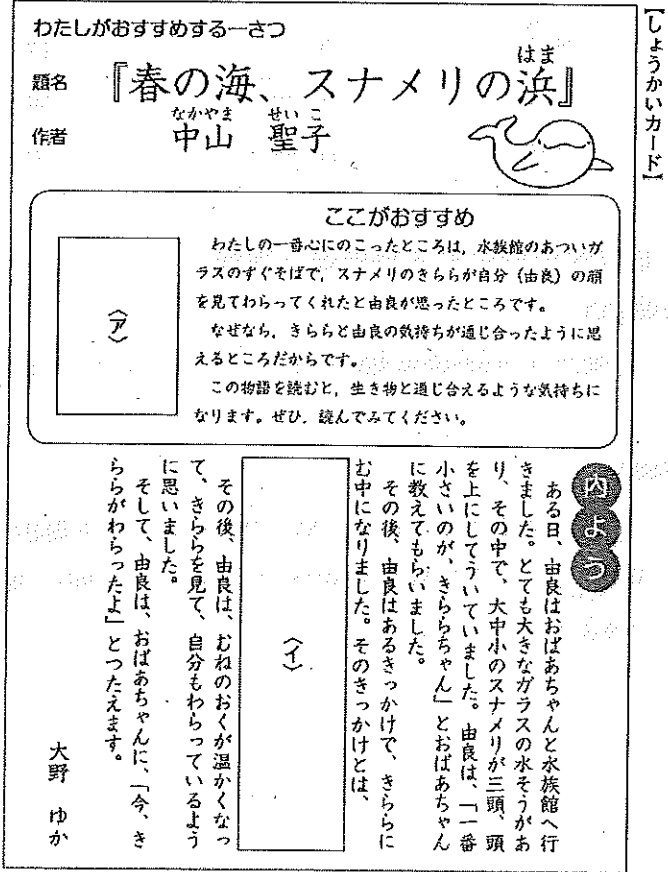 【しょうかいカード】
わたしがおすすめする一さつ
題名 『春の海、スナメリの浜』
はま
作者 中山 聖子
なかやま せいこ
ここがおすすめ
わたしの一番心にのこったところは，水族館のあついガ
ラスのすぐそばで，スナメリのきららが自分（由良）の顔
を見てわらってくれたと由良が思ったところです。
なぜなら，きららと由良の気持ちが通じ合ったように思
えるところだからです。
この物語を読むと，生き物と通じ合えるような気持ちに
なります。ぜひ，読んでみてください。
〈ア〉
内よう
ある日、由良はおばあちゃんと水族館へ行
きました。とても大きなガラスの水そうがあ
り、その中で、大中小のスナメリが三頭、頭
を上にしてういていました。由良は、「一番
小さいのが、きららちゃん」とおばあちゃん
に教えてもらいました。
その後、由良はあるきっかけで、きららに
む中になりました。そのきっかけとは、
〈イ〉
その後、由良は、むねのおくが温かくなっ
て、きららを見て、自分もわらっているよう
に思いました。
そして、由良は、おばあちゃんに、「今、き
ららがわらったよ」とつたえます。
大野 ゆか